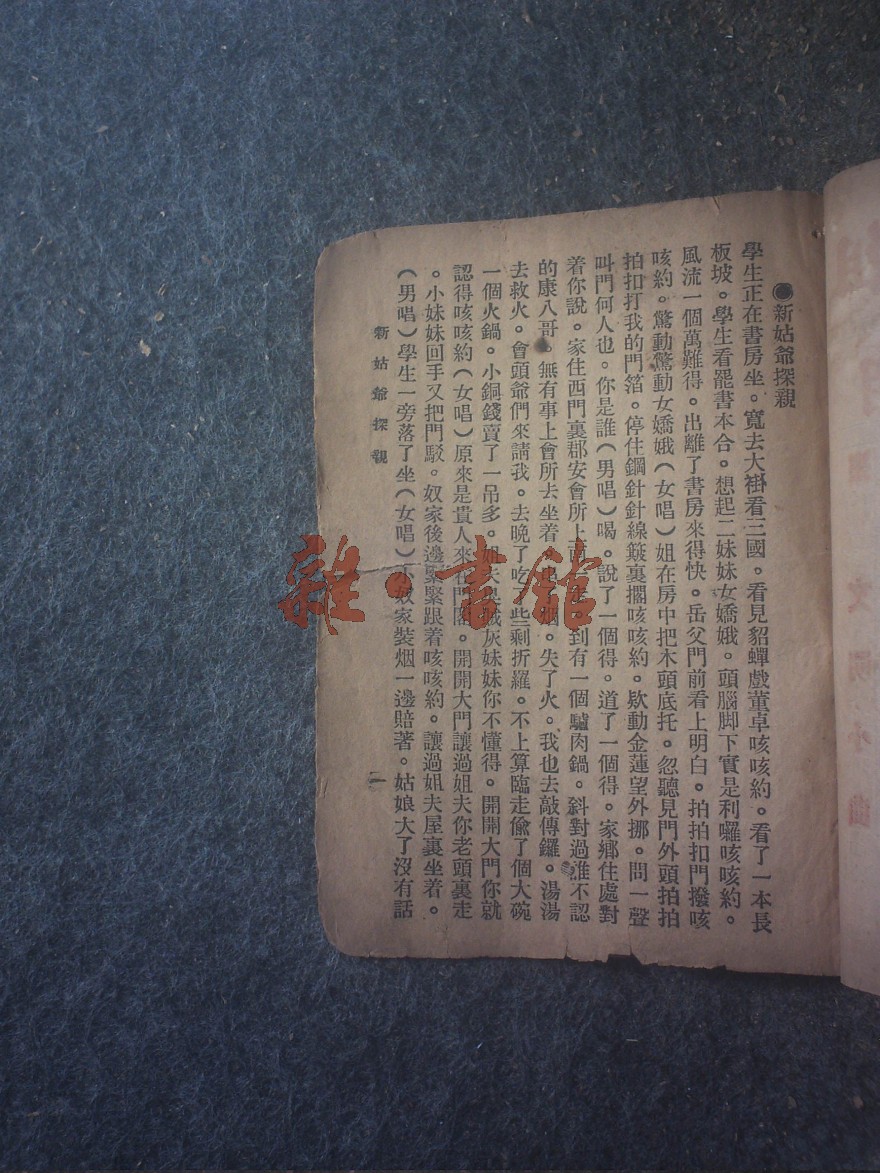 ●新姑爺探親
學生正在書房坐。寬去大褂看三國。看見貂蟬戲董卓咳咳約。看了一本長
板坡。學生看罷書本合。想起二妹妹女嬌娥。頭腦脚下實是利囉咳咳約。
風流一個萬難得。出離了書房來得快。岳父門前看上明白。拍拍扣門撥咳
咳約。驚動驚動女嬌娥(女唱)姐在房中把木頭底托。忽聽見門外頭拍拍
拍扣打我的門箔。停住鋼針針線簸裏擱咳咳約。欵動金蓮望外挪。問一聲
叫門何人也。你是誰(男唱)喝。說了一個得。道了一個得。家鄉住處對
着你說。家住西門裏郡安會所上面 到有一個驢肉鍋。斜對過誰不認
的康八哥。無有事上會所去坐着 失了火。我也去敲傳鑼。湯湯
去救火。會頭爺們來請我。去晚了吃 些剩折羅。不上算臨走偷了個大碗
一個火鍋。小銅錢賣了一吊多。姐夫 灰妹妹你不懂得。開開大門你就
認得咳咳約(女唱)原來是貴人來在門閣。開開大門讓過姐夫你老頭裏走
。小妹妹回手又把門駁。奴家後邊緊緊跟着咳咳約。讓過姐夫屋裏坐着。
(男唱)學生一旁落了坐(女唱)小奴家裝烟一邊賠著。姑娘大了沒有話
新姑爺探親
一
雜·書館